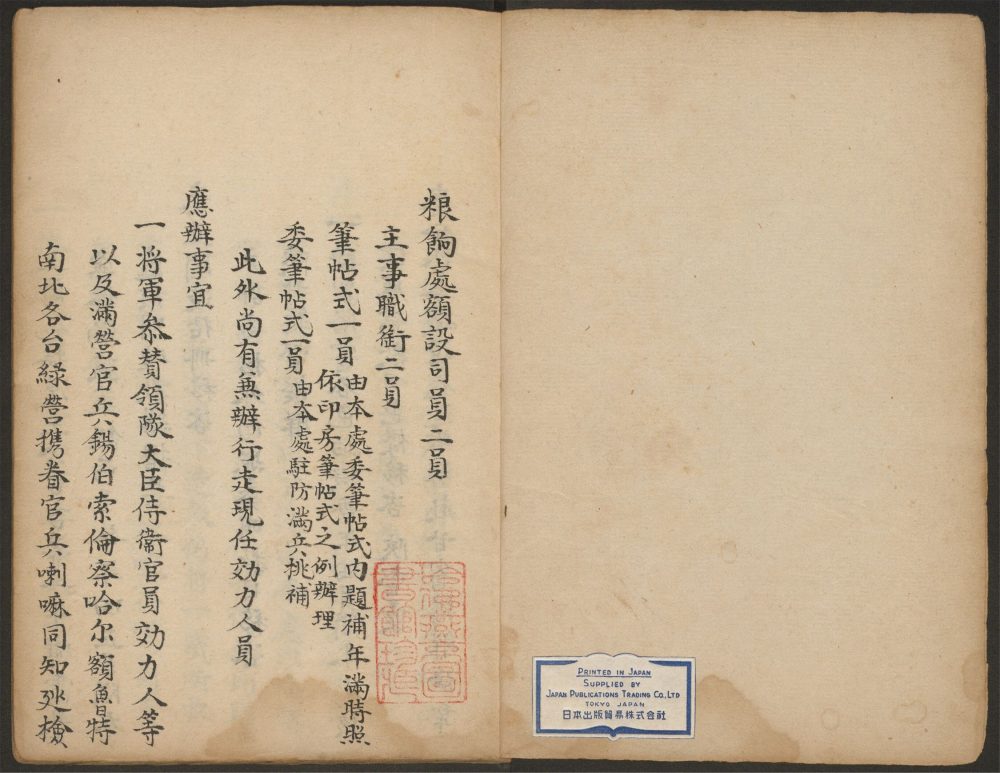 粮餉處額設司員二員
主事職銜二員
筆帖式一員
由本處委筆帖式內題補年滿時照
依印房筆帖式之例辦理
委筆帖式一員
由本處駐防滿兵挑補
此外尚有兼辦行走現任効力人員
應辦事宜
一將軍叅贊領隊大臣侍衛官員効力人等
以及滿營官兵錫伯索倫察哈尔額魯特
南北各台綠營携眷官兵喇嘛同知廵檢
哈佛燕京圖
書館珍藏
PRINTED IN JAPAN
SUPPLIED BY
JAPAN PUBLICATIONS TRADING CO., LTD
TOKYO JAPAN
日本出版貿易株式会社